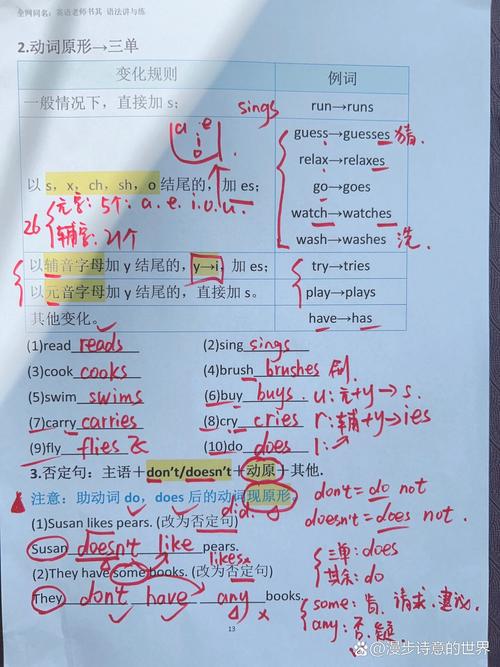 全网同名：英语老师书其 语法讲与练
2.动词原形→三单
变化规则 例词
一般情况下，直接加 s； sings run→runs
a e i o u
guess→guesses 猜
relax→relaxes
go→goes
以 s，x，ch，sh，o 结尾的，加 es；
watch→watches
26 元字：5个：a.e.i.o.u.
辅字：21个
wash→washes 洗
以辅音字母加 y 结尾的，y→i，加 es； try→tries
以元音字母加 y 结尾的，直接加 s。 play→plays
其他变化。 have→has
(1)read reads (2)sing sings
(3)cook cooks (4)brush brushes 刷
(5)swim swims (6)buy buys. u:元+y→s.
(7)carry carries (8)cry cries r:辅+y→ies
(9)fly flies 飞 (10)do does l:
3.否定句：主语＋don't/doesn't＋动原＋其他.
注意：助动词 do，does 后的动词现原形。
did.
don't = do not
doesn't = does not.
(1)Susan likes pears. (改为否定句)
Susan doesn't like pears.
likes×
三单：does
其余：do
(2)They have some books. (改为否定句)
They don't have any books.
some：肯、请求、建议
any：否、疑
13
@漫步诗意的世界